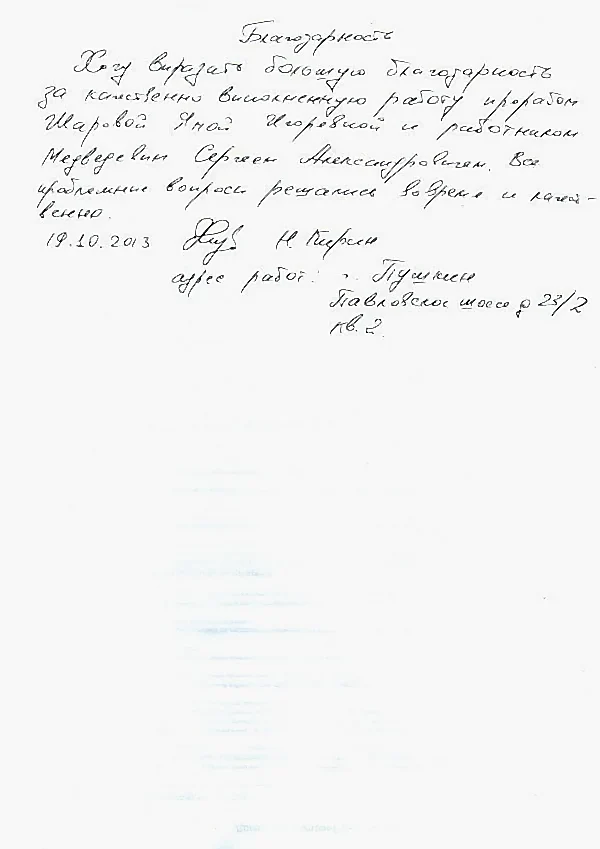 Благодарность
Хочу виразить большую благодарность
за качственно виполненную работу прорабом
Шаровой Яной Игоревной и работником
Медведевим Сергеем Александровичем. Все
проблемние вопроси решались вовреме и качест-
венно.
19.10.2013 Н. Кирин
адрес работ: г. Пушкин
Павловское шоссе д 23/2
кв. 2